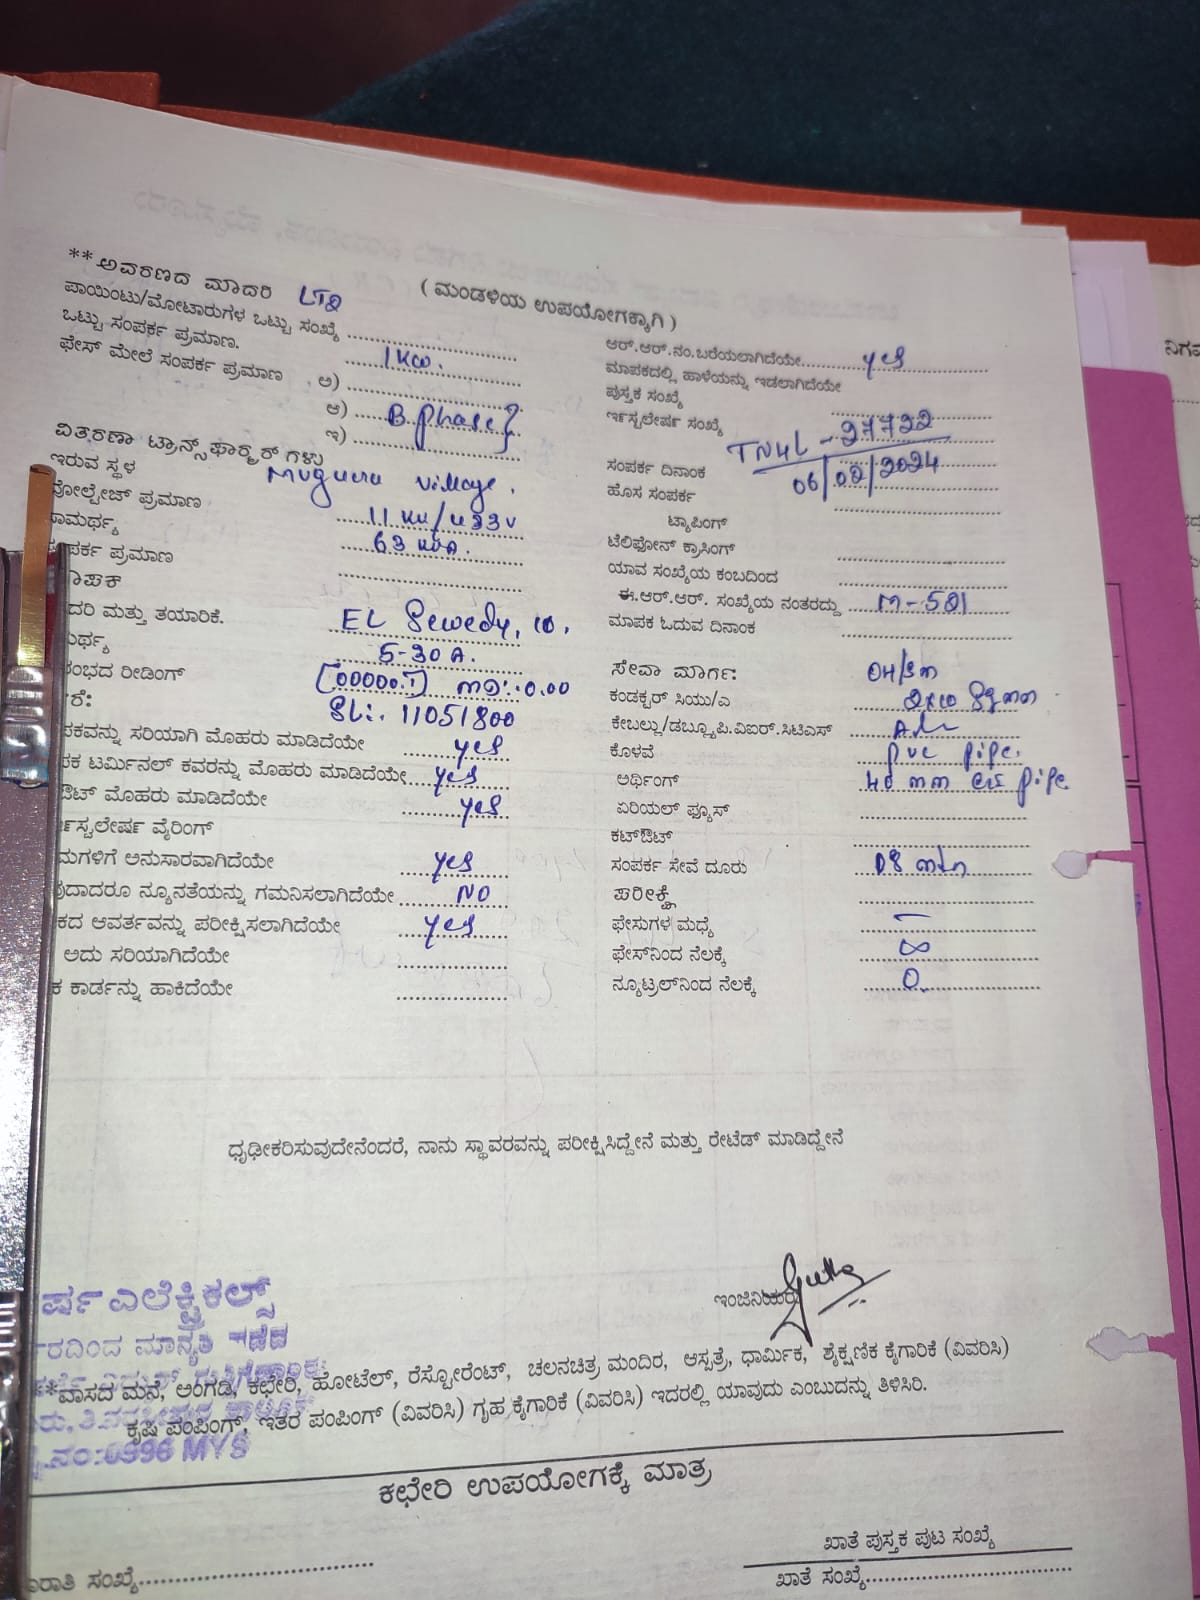 **ಅವರಣದ ಮಾದರಿ LT2
(ಮಂಡಳಿಯ ಉಪಯೋಗಕ್ಕಾಗಿ)
ಪಾಯಿಂಟು/ಮೋಟಾರುಗಳ ಒಟ್ಟು ಸಂಖ್ಯೆ
ಒಟ್ಟು ಸಂಪರ್ಕ ಪ್ರಮಾಣ. 1 KW.
ಫೇಸ್ ಮೇಲೆ ಸಂಪರ್ಕ ಪ್ರಮಾಣ ಅ)
ಆ) B.Phase
ಇ)
ವಿತರಣಾ ಟ್ರಾನ್ಸ್‌ಫಾರ್ಮರ್ ಗಳು
ಇರುವ ಸ್ಥಳ village.
ವೋಲ್ಟೇಜ್ ಪ್ರಮಾಣ 11 KV/433 V
ಸಾಮರ್ಥ್ಯ 63 KVA.
ಪರ್ಕ ಪ್ರಮಾಣ
ಾಪಕ
ದರಿ ಮತ್ತು ತಯಾರಿಕೆ. EL Sewedy, co.
ಮರ್ಥ್ಯ 5-30 A.
ರಂಭದ ರೀಡಿಂಗ್ 0.00
ರೆ: SL:. 11051800
ಪಕವನ್ನು ಸರಿಯಾಗಿ ಮೊಹರು ಮಾಡಿದೆಯೇ yes
ಪಕ ಟರ್ಮಿನಲ್ ಕವರನ್ನು ಮೊಹರು ಮಾಡಿದೆಯೇ yes
ಔಟ್ ಮೊಹರು ಮಾಡಿದೆಯೇ yes
ರ್ಇಸ್ಟಲೇರ್ಷ ವೈರಿಂಗ್
ಮಗಳಿಗೆ ಅನುಸಾರವಾಗಿದೆಯೇ yes
ವುದಾದರೂ ನ್ಯೂನತೆಯನ್ನು ಗಮನಿಸಲಾಗಿದೆಯೇ NO
ಕದ ಆವರ್ತವನ್ನು ಪರೀಕ್ಷಿಸಲಾಗಿದೆಯೇ yes
ಅದು ಸರಿಯಾಗಿದೆಯೇ
ಕ ಕಾರ್ಡನ್ನು ಹಾಕಿದೆಯೇ
ಆರ್.ಆರ್.ನಂ.ಬರೆಯಲಾಗಿದೆಯೇ yes
ಮಾಪಕದಲ್ಲಿ ಹಾಳೆಯನ್ನು ಇಡಲಾಗಿದೆಯೇ
ಪುಸ್ತಕ ಸಂಖ್ಯೆ
ರ್ಇಸ್ಟಲೇರ್ಷ ಸಂಖ್ಯೆ TN4L - 27722
ಸಂಪರ್ಕ ದಿನಾಂಕ 06/02/2024
ಹೊಸ ಸಂಪರ್ಕ
ಟ್ಯಾಪಿಂಗ್
ಟೆಲಿಫೋನ್ ಕ್ರಾಸಿಂಗ್
ಯಾವ ಸಂಖ್ಯೆಯ ಕಂಬದಿಂದ
ಈ.ಆರ್.ಆರ್. ಸಂಖ್ಯೆಯ ನಂತರದ್ದು M-521
ಮಾಪಕ ಓದುವ ದಿನಾಂಕ
ಸೇವಾ ಮಾರ್ಗ: OH/SM
ಕಂಡಕ್ಟರ್ ಸಿಯು/ಎ
ಕೇಬಲ್ಲು/ಡಬ್ಲ್ಯೂ.ಪಿ.ವಿಐರ್.ಸಿಟಿಎಸ್
ಕೊಳವೆ pvc pipe.
ಅರ್ಥಿಂಗ್ 40 mm pipe.
ಏರಿಯಲ್ ಫ್ಯೂಸ್
ಕಟ್‌ಔಟ್
ಸಂಪರ್ಕ ಸೇವೆ ದೂರು 08 mtr
ಪರೀಕ್ಷೆ
ಫೇಸುಗಳ ಮಧ್ಯೆ –
ಫೇಸ್‌ನಿಂದ ನೆಲಕ್ಕೆ ∞
ನ್ಯೂಟ್ರಲ್‌ನಿಂದ ನೆಲಕ್ಕೆ 0.
ಧೃಢೀಕರಿಸುವುದೇನೆಂದರೆ, ನಾನು ಸ್ಥಾವರವನ್ನು ಪರೀಕ್ಷಿಸಿದ್ದೇನೆ ಮತ್ತು ರೇಟೆಡ್ ಮಾಡಿದ್ದೇನೆ
ಇಂಜಿನಿಯರು
ರ್ಷ ಎಲೆಕ್ಟ್ರಿಕಲ್ಸ್
ರದಿಂದ ಮಾನ್ಯತಿ ಪಡೆದ
**ವಾಸದ ಮನೆ, ಅಂಗಡಿ, ಕಛೇರಿ, ಹೋಟೆಲ್, ರೆಸ್ಟೋರೆಂಟ್, ಚಲನಚಿತ್ರ ಮಂದಿರ, ಆಸ್ಪತ್ರೆ, ಧಾರ್ಮಿಕ, ಶೈಕ್ಷಣಿಕ ಕೈಗಾರಿಕೆ (ವಿವರಿಸಿ)
ಕೃಷಿ ಪಂಪಿಂಗ್, ಇತರ ಪಂಪಿಂಗ್ (ವಿವರಿಸಿ) ಗೃಹ ಕೈಗಾರಿಕೆ (ವಿವರಿಸಿ) ಇದರಲ್ಲಿ ಯಾವುದು ಎಂಬುದನ್ನು ತಿಳಿಸಿರಿ.
.ನಂ:0996 MYS
ಕಛೇರಿ ಉಪಯೋಗಕ್ಕೆ ಮಾತ್ರ
ಖಾತೆ ಪುಸ್ತಕ ಪುಟ ಸಂಖ್ಯೆ
ರಾತಿ ಸಂಖ್ಯೆ
ಖಾತೆ ಸಂಖ್ಯೆ